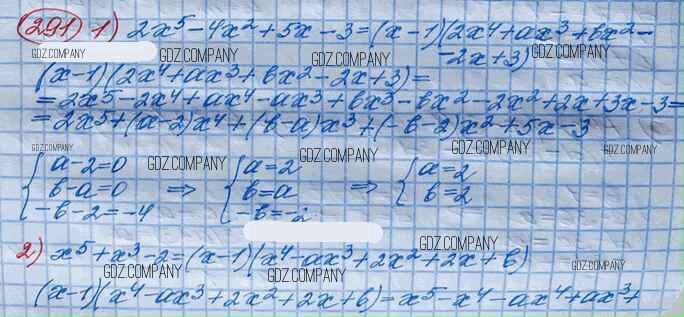 291 1) 2x⁵-4x²+5x-3=(x-1)(2x⁴+ax³+bx²-
-2x+3)
GDZ.COMPANY GDZ.COMPANY GDZ.COMPANY GDZ.COMPANY
(x-1)(2x⁴+ax³+bx²-2x+3)=
=2x⁵-2x⁴+ax⁴-ax³+bx³-bx²-2x²+2x+3x-3=
=2x⁵+(a-2)x⁴+(b-a)x³+(-b-2)x²+5x-3
GDZ.COMPANY GDZ.COMPANY GDZ.COMPANY GDZ.COMPANY GDZ.COMPANY
{ a-2=0 { a=2 { a=2
b-a=0 ⇒ b=a ⇒ b=2
-b-2=-4 -b=-2
2) x⁵+x³-2=(x-1)(x⁴-ax³+2x²+2x+b)
GDZ.COMPANY GDZ.COMPANY GDZ.COMPANY GDZ.COMPANY
(x-1)(x⁴-ax³+2x²+2x+b)=x⁵-x⁴-ax⁴+ax³+